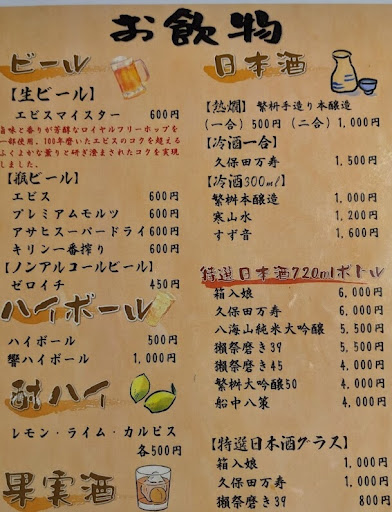 お飲物
ビール
【生ビール】
エビスマイスター 600円
旨味と香りが芳醇なロイヤルフリーホップを
一部使用、100年磨いたエビスのコクを超える
ふくよかな薫りと研ぎ澄まされたコクを実現
しました。
【瓶ビール】
エビス 600円
プレミアムモルツ 600円
アサヒスーパードライ 600円
キリン一番搾り 600円
【ノンアルコールビール】
ゼロイチ 450円
ハイボール
ハイボール 500円
響ハイボール 1,000円
酎ハイ
レモン・ライム・カルピス
各500円
果実酒
日本酒
【熱燗】 繁桝手造り本醸造
(一合) 500円 (二合) 1,000円
【冷酒一合】
久保田万寿 1,500円
【冷酒300ml】
繁桝本醸造 1,000円
寒山水 1,200円
すず音 1,600円
特選日本酒720mlボトル
箱入娘 6,000円
久保田万寿 6,000円
八海山純米大吟醸 5,500円
獺祭磨き39 5,500円
獺祭磨き45 4,000円
繁桝大吟醸50 4,000円
船中八策 4,000円
【特選日本酒グラス】
箱入娘 1,000円
久保田万寿 1,000円
獺祭磨き39 800円